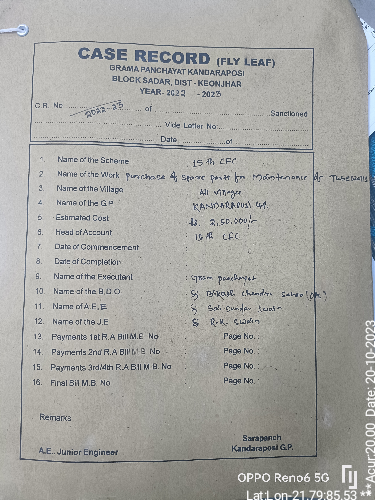 CASE RECORD (FLY LEAF)
GRAMA PANCHAYAT KANDARAPOSI
BLOCK SADAR, DIST - KEONJHAR
YEAR- 2022 - 2023
C.R. No 2022-23 of Sanctioned
Vide Lotter No
Date of
1. Name of the Scheme : 15 th CFC
2. Name of the Work purchase of spare parts for Maintenance of Tubewells
3. Name of the Village : All villages
4. Name of the G.P : KANDARAPOSI GP.
5. Estimated Cost : Rs. 2,50,000/-
6. Head of Account : 15 th CFC
7. Date of Commencement :
8. Date of Completion :
9. Name of the Executent : Gram panchayat
10. Name of the B.D.O : Bikash Chandra Sahoo
11. Name of A.E.E :
12. Name of the J.E :
13 Payments 1st R.A Bill M.E. No Page No. :
14. Payments 2nd R.A Bill M.B. No Page No. :
15. Payments 3rd/4th R.A Bill M.B. No Page No. :
16. Final Bill M.B. No Page No. :
Remarks
A.E.. Junior Engineer
Sarapanch
Kandaraposi G.P.
OPPO Reno6 5G
Lat:Lon-21.79:85.53
***Acur:20.00 Date: 20-10-2023